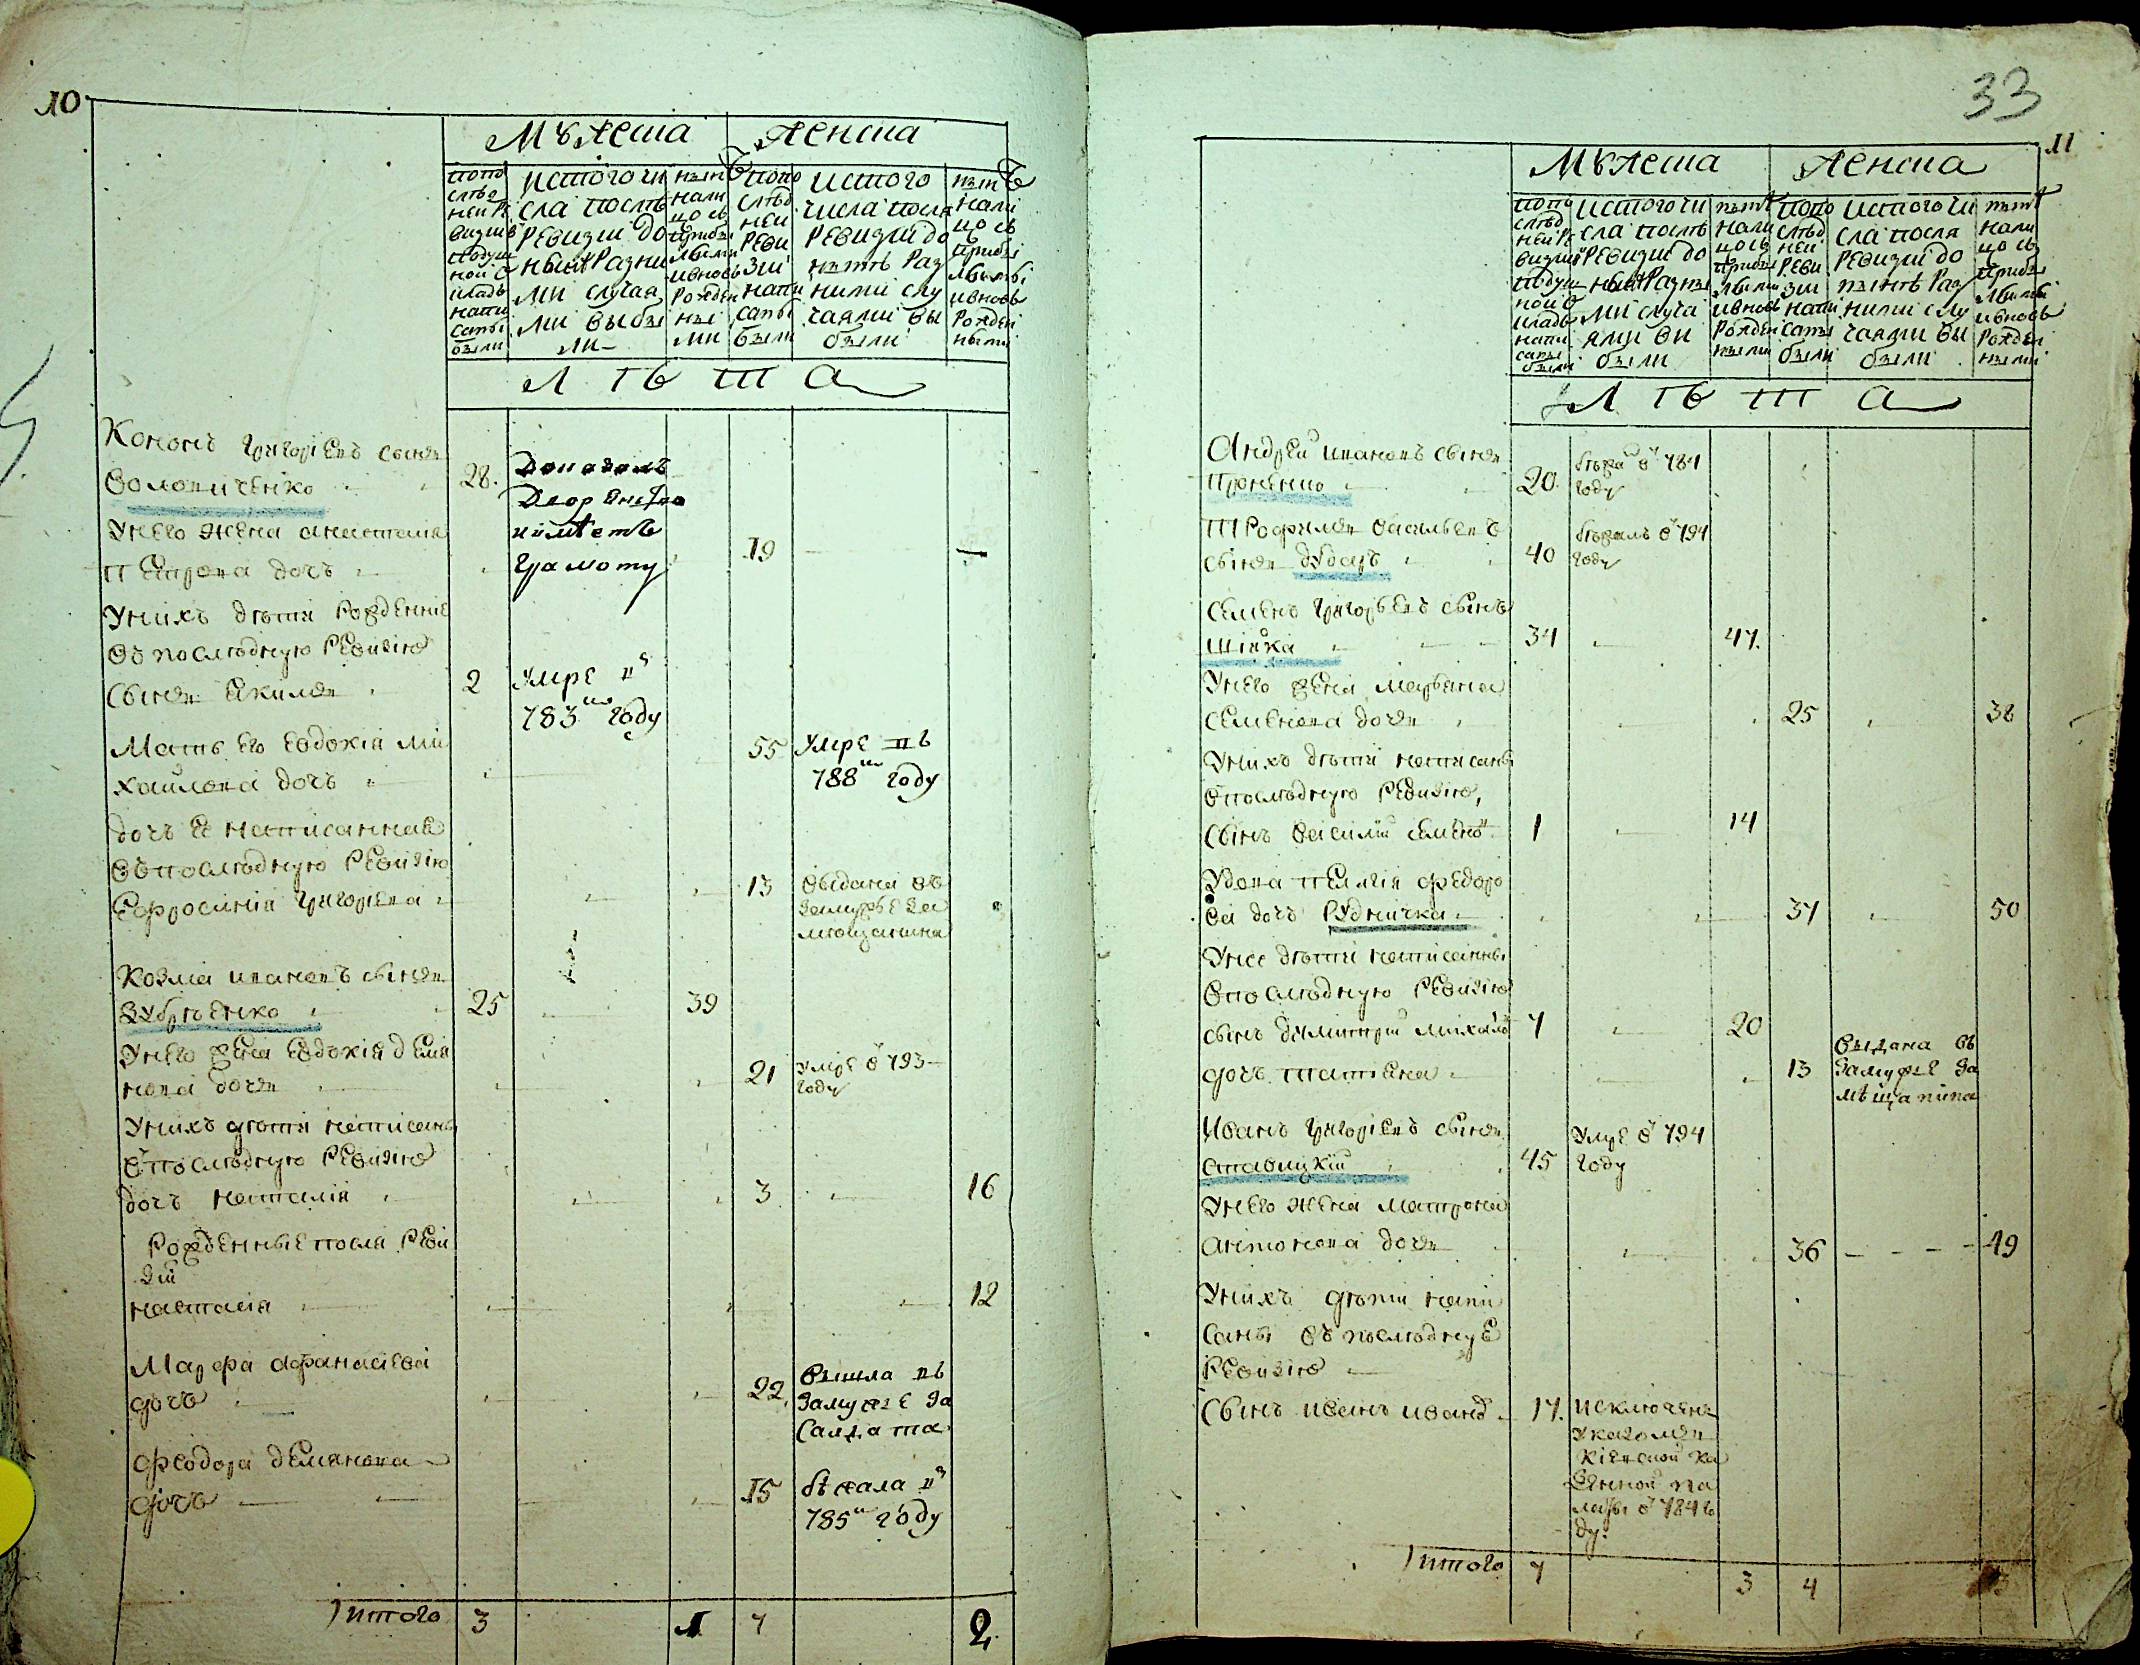 10
Мужеска
Женска
по по
слѣд
ней ре
визии
подуш
ной о
клада
напи
саны
были
ис того чи
сла послѣ
ревизии до
ными
случая
ми выбы
ли
нынѣ
нали
цо съ
прибы
лыми
и вновь
рожден
ны
ми
по по
слѣд
ней
реви
зии
напи
саны
были
ис того
числа после
ревизии до
нынѣ раз
ними слу
чаями вы
были
нынѣ
нали
цо съ
прибы
лыми
и вновь
рожден
ными
Лѣта
Кононъ Григориевъ сынъ
28.
Дворянство
имѣетъ
грамоту
У него жена Анастасия
Петрова дочь
19
У нихъ дѣти рожденние
въ последную ревизию
сынъ Екимъ
2
умре в
783 году
Мать его Евдокия Ми
хайлова дочь
55
умре въ
788 году
дочь ее написанная
въ последную ревизию
Ефросиния Григориева
13
выдана въ
замужье за
мещанина
Козма Ивановъ сынъ
25
39
У него жена Евдокия Деми
нова дочь
21
умре в 793
году
У нихъ дѣти написаны
в последную ревизию
дочь Наталия
3
16
Рожденные после реви
зии
Настасия
12
Марфа Афанасиева
дочь
22
вышла въ
замужье за
салдата
Феодора Демянова
дочь
15
бѣжала в
785 году
Итого
3
1
7
2
33
11
Мужеска
Женска
по по
слѣд
ней ре
визии
подуш
ной о
кладъ
напи
саны
были
ис того чи
сла послѣ
ревизии до
ными случа
ями вы
были
нынѣ
нали
цо съ
прибы
лыми
и вновь
рожден
ными
по по
слѣд
ней
реви
зии
напи
саны
были
ис того чи
сла после
ревизии до
нынѣ раз
ними слу
чаями вы
были
нынѣ
нали
цо съ
прибы
лыми
и вновь
рожден
ными
Лѣта
Андрей Ивановъ сынъ
Проненко
20
в 781
году
Трофимъ Васильевъ
сынъ Дударь
40
бѣжалъ в 794
году
Семенъ Григорьевъ сынъ
Шийка
34
47.
У него жена Марьяна
Семенова дочь
25
38
У нихъ дѣти написаны
в последную ревизию,
сынъ Василий Семеновъ
1
14
Удова Пелагия Федоро
ва дочь Рудничка
37
50
У нее дѣти написанны
в последную ревизию
сынъ Димитрий Михайловъ
7
20
дочь Татьяна
13
выдана въ
замужье за
мѣщанина
Иванъ Григориевъ сынъ
Ставицкий
45
умре в 794
году
У него жена Матрона
Антонова дочь
36
49
У нихъ дѣти напи
саны въ последную
ревизию
Сынъ Иванъ Ивановъ
17.
исключенъ
указомъ
Киевской ка
зенной па
латы в 784 го
ду.
Итого
7
3
4
3